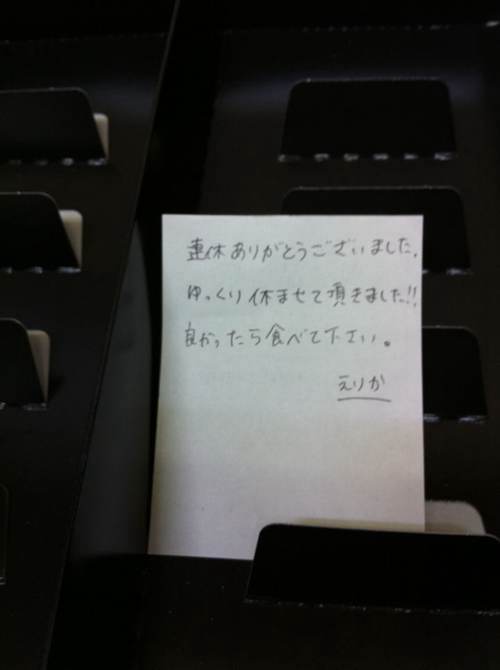 連休ありがとうございました。
ゆっくり休ませて頂きました!!
良かったら食べて下さい。
えりか